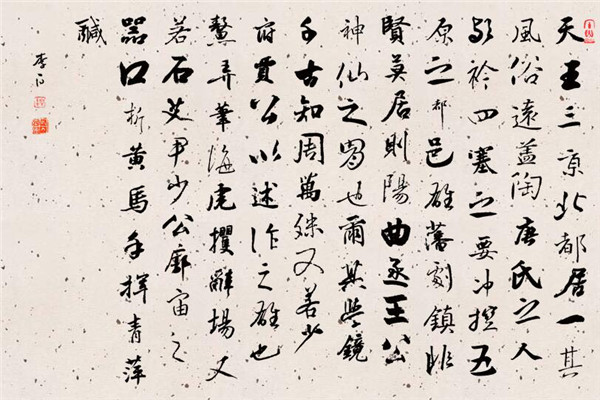 天王三京北都居一其
風俗遠蓋陶唐氏之人
歟衿四塞之要冲控五
原之都邑雄藩劇鎮非
賢莫居則陽曲丞王公
神仙之胄也爾其學鏡
千古知周萬殊又若少
府賈公以述作之雄也
鰲弄筆海虎攫辭場又
若石艾尹少公廊廟之
器口折黄馬手揮青萍
鹹
李白